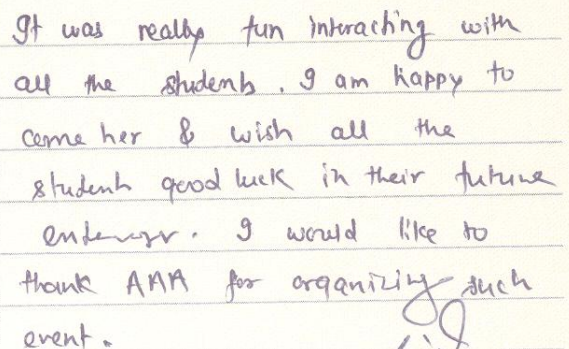 It was really fun interacting with
all the students. I am happy to
come her & wish all the
student good luck in their future
endevor. I would like to
thank AAA for organizing such
event.